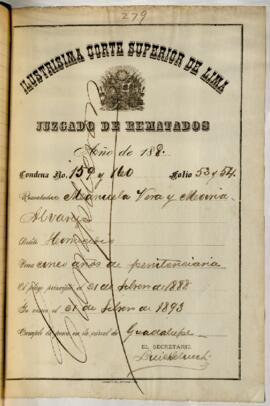 279
ILUSTRISIMA CORTE SUPERIOR DE LIMA
JUZGADO DE REMATADOS
Año de 188
Condena No. 159 y 160 Folio 53 y 54
Rematado Manuela Vera y Maria
Alvarez
Delito Homicidio
Pena cinco años de penitenciaria
El pliego principió el 21 de Febrero de 1888
Se vence el 21 de Febrero de 1893
Cumple la pena en la carcel de Guadalupe
EL SECRETARIO